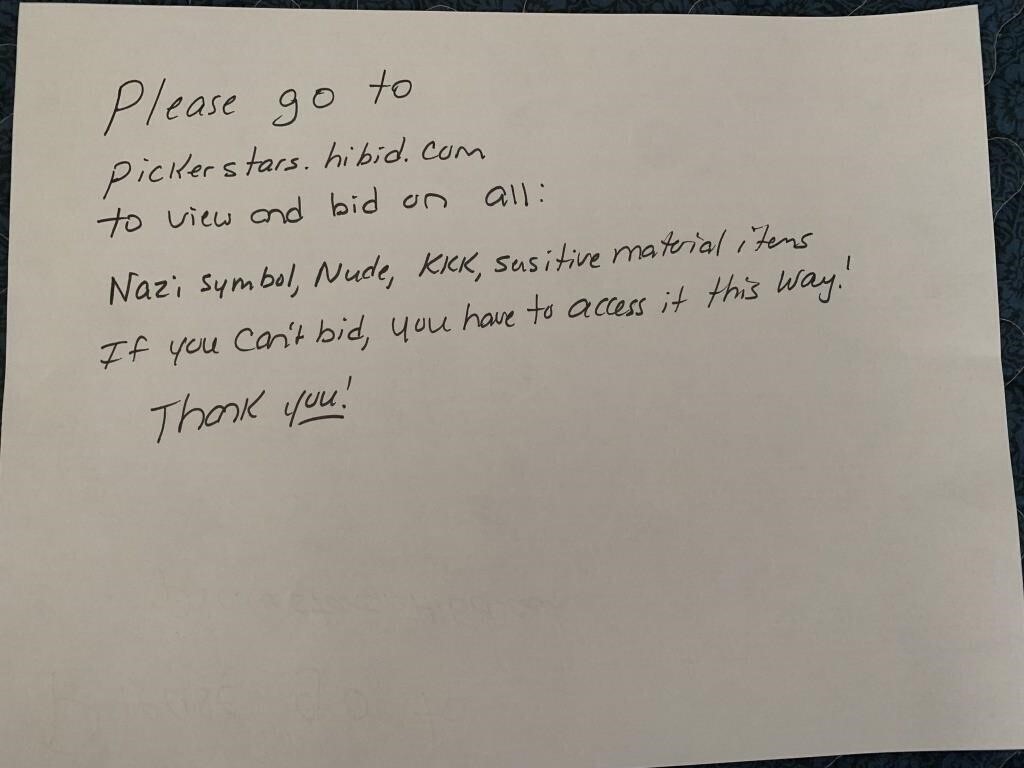 Please go to
pickerstars.hibid.com
to view and bid on all:
Nazi symbol, Nude, KKK, susitive material items
If you can't bid, you have to access it this way!
Thank you!